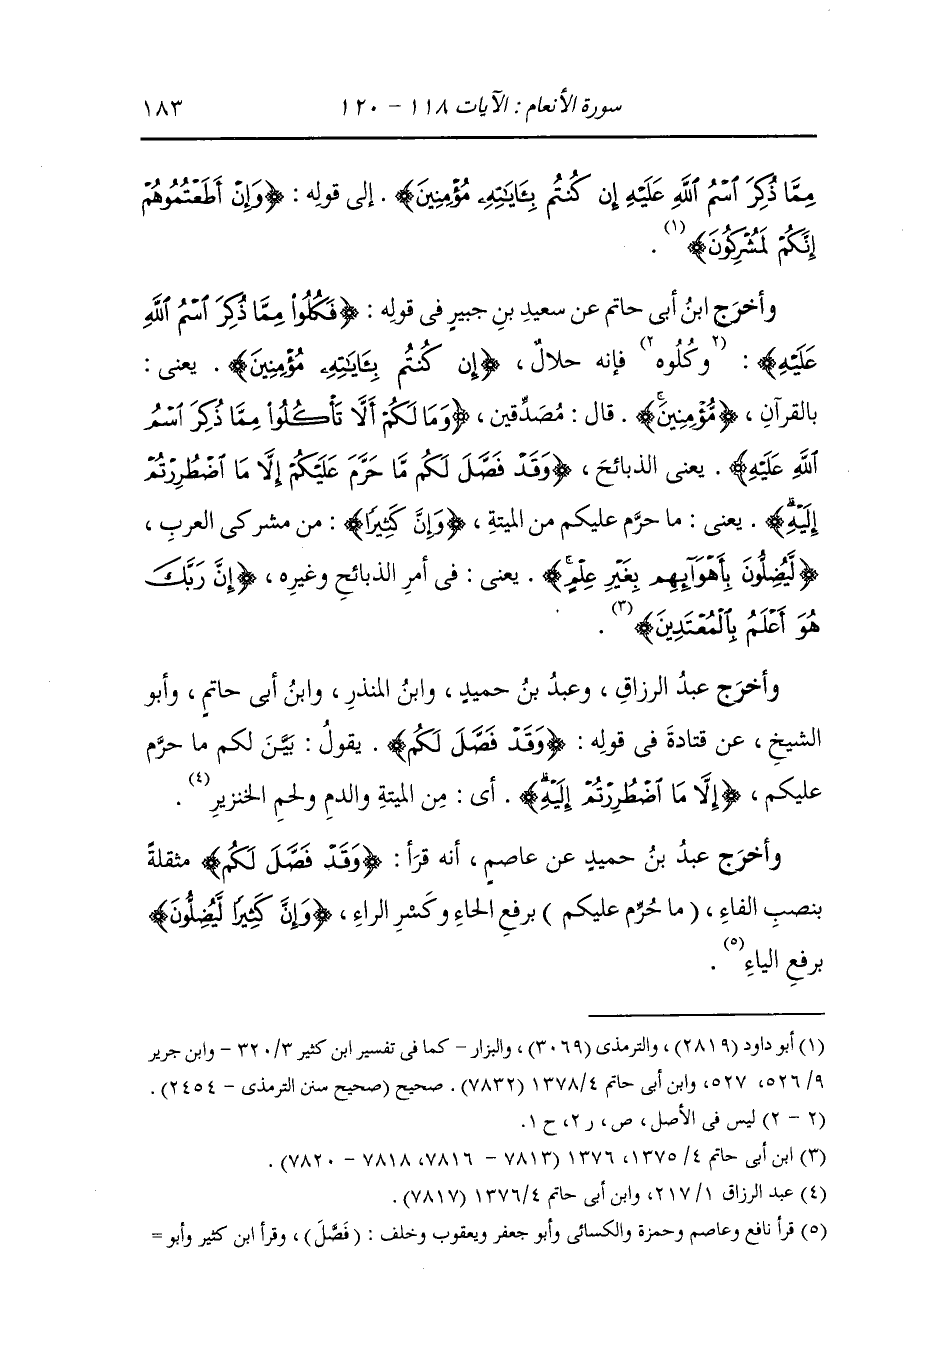 سورة الأنعام : الآيات ١١٨ - ١٢٠ ١٨٣
مِمَّا ذُكِرَ ٱسْمُ ٱللَّهِ عَلَيْهِ إِن كُنتُم بِـَٔايَـٰتِهِۦ مُؤْمِنِينَ﴾ . إلى قولِه : ﴿وَإِنْ أَطَعْتُمُوهُمْ
إِنَّكُمْ لَمُشْرِكُونَ﴾(١) .
وأخرَج ابنُ أبى حاتمٍ عن سعيدِ بنِ جبيرٍ فى قولِه : ﴿فَكُلُوا۟ مِمَّا ذُكِرَ ٱسْمُ ٱللَّهِ
عَلَيْهِ﴾ : (٢وكُلُوه٢) فإنه حلالٌ ، ﴿إِن كُنتُم بِـَٔايَـٰتِهِۦ مُؤْمِنِينَ﴾ . يعنى :
بالقرآنِ ، ﴿مُّؤْمِنِينَۚ﴾ . قال : مُصَدِّقين ، ﴿وَمَا لَكُمْ أَلَّا تَأْكُلُوا۟ مِمَّا ذُكِرَ ٱسْمُ
ٱللَّهِ عَلَيْهِ﴾ . يعنى الذبائحَ ، ﴿وَقَدْ فَصَّلَ لَكُم مَّا حَرَّمَ عَلَيْكُمْ إِلَّا مَا ٱضْطُرِرْتُمْ
إِلَيْهِۗ﴾ . يعنى : ما حرَّم عليكم من الميتةِ ، ﴿وَإِنَّ كَثِيرًا﴾ : من مشركى العربِ ،
﴿لَّيُضِلُّونَ بِأَهْوَآئِهِم بِغَيْرِ عِلْمٍۚ﴾ . يعنى : فى أمرِ الذبائحِ وغيرِه ، ﴿إِنَّ رَبَّكَ
هُوَ أَعْلَمُ بِٱلْمُعْتَدِينَ﴾(٣) .
وأخرَج عبدُ الرزاقِ ، وعبدُ بنُ حميدٍ ، وابنُ المنذرِ ، وابنُ أبى حاتمٍ ، وأبو
الشيخِ ، عن قتادةَ فى قولِه : ﴿وَقَدْ فَصَّلَ لَكُم﴾ . يقولُ : بَيَّنَ لكم ما حرَّم
عليكم ، ﴿إِلَّا مَا ٱضْطُرِرْتُمْ إِلَيْهِۗ﴾ . أى : مِن الميتةِ والدمِ ولحمِ الخنزيرِ(٤) .
وأخرَج عبدُ بنُ حميدٍ عن عاصمٍ ، أنه قرَأ : ﴿وَقَدْ فَصَّلَ لَكُم﴾ مثقلةً
بنصبِ الفاءِ ، ( ما حُرِّم عليكم ) برفعِ الحاءِ وكَسْرِ الراءِ ، ﴿وَإِنَّ كَثِيرًا لَّيُضِلُّونَ﴾
برفعِ الياءِ(٥) .
(١) أبو داود (٢٨١٩) ، والترمذى (٣٠٦٩) ، والبزار - كما فى تفسير ابن كثير ٣٢٠/٣ - وابن جرير
٥٢٦/٩، ٥٢٧، وابن أبى حاتم ١٣٧٨/٤ (٧٨٣٢) . صحيح (صحيح سنن الترمذى - ٢٤٥٤) .
(٢ - ٢) ليس فى الأصل ، ص ، ر ٢، ح ١.
(٣) ابن أبى حاتم ١٣٧٥/٤، ١٣٧٦ (٧٨١٣ - ٧٨١٦، ٧٨١٨ - ٧٨٢٠) .
(٤) عبد الرزاق ٢١٧/١، وابن أبى حاتم ١٣٧٦/٤ (٧٨١٧) .
(٥) قرأ نافع وعاصم وحمزة والكسائى وأبو جعفر ويعقوب وخلف : ( فَصَّلَ ) ، وقرأ ابن كثير وأبو =